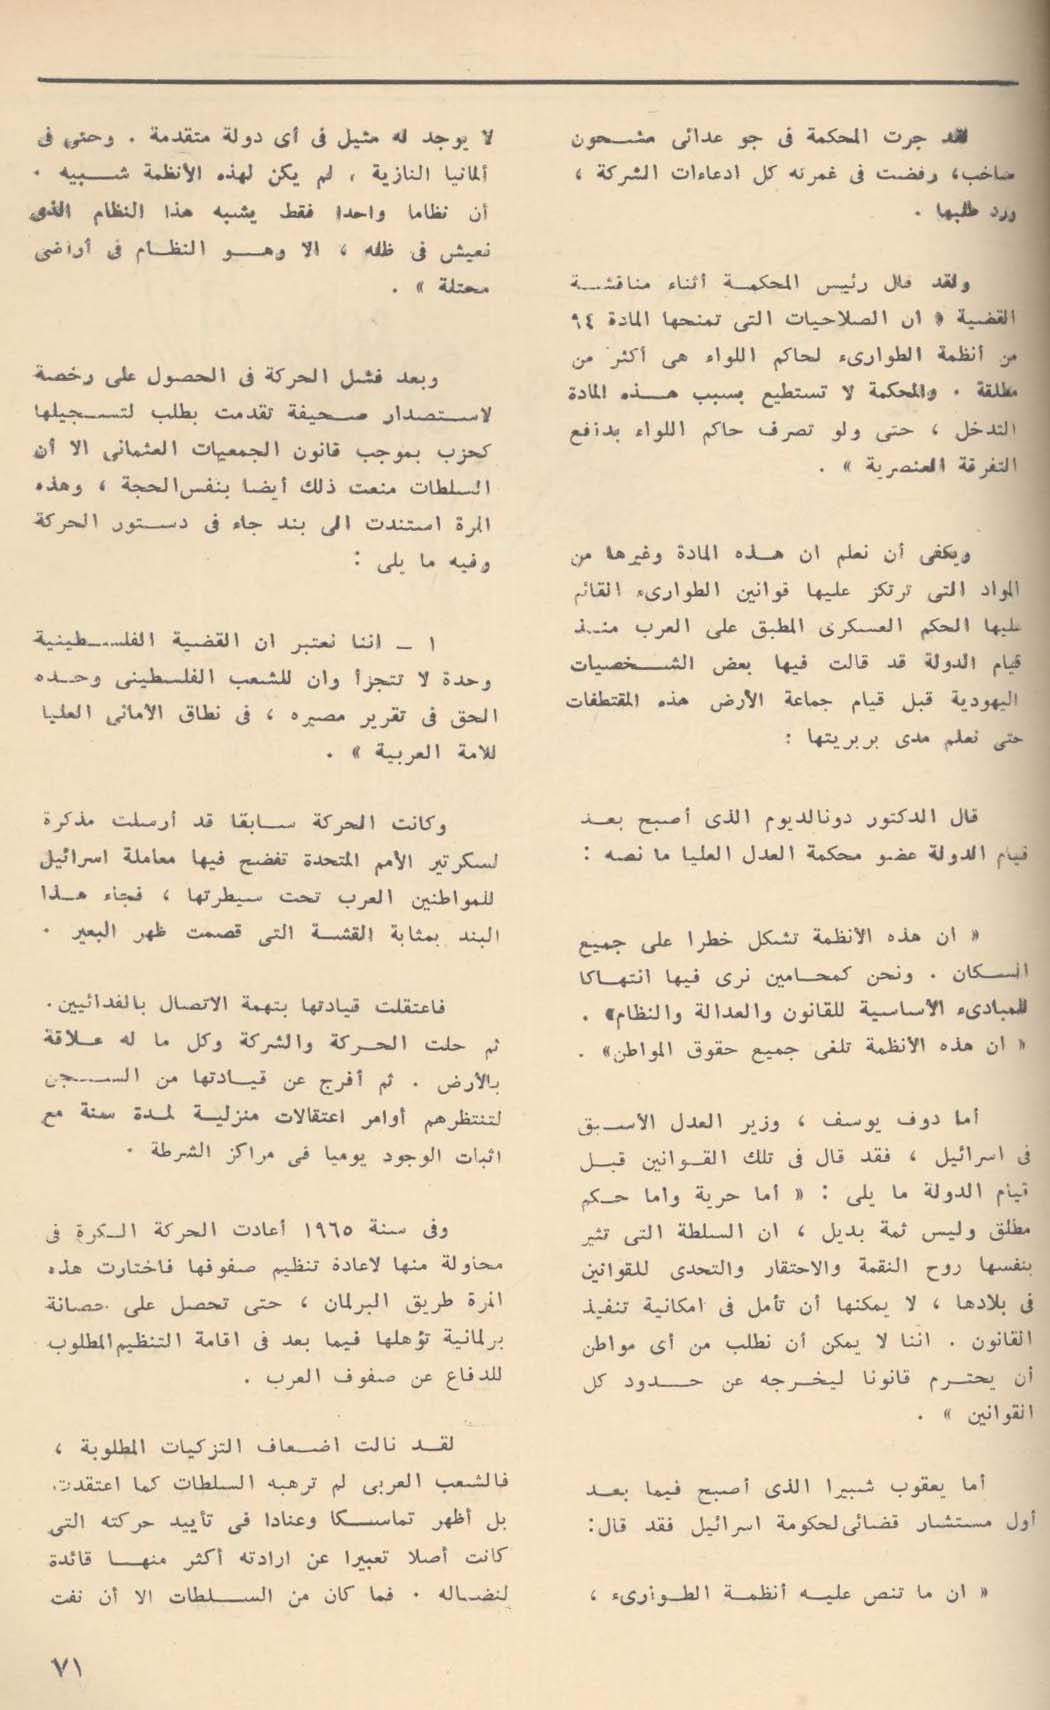 لقد جرت المحكمة فى جو عدائى مشحون
صاخب، رفضت فى غمرته كل ادعاءات الشركة ،
ورد طلبها .
ولقد قال رئيس المحكمة أثناء مناقشة
القضية « ان الصلاحيات التى تمنحها المادة ٩٤
من أنظمة الطوارىء لحاكم اللواء هى أكثر من
مطلقة . والمحكمة لا تستطيع بسبب هذه المادة
التدخل ، حتى ولو تصرف حاكم اللواء بدافع
التفرقة العنصرية » .
ويكفى أن نعلم ان هذه المادة وغيرها من
المواد التى ترتكز عليها قوانين الطوارىء القائم
عليها الحكم العسكرى المطبق على العرب منذ
قيام الدولة قد قالت فيها بعض الشخصيات
اليهودية قبل قيام جماعة الأرض هذه المقتطفات
حتى نعلم مدى بربريتها :
قال الدكتور دونالديوم الذى أصبح بعد
قيام الدولة عضو محكمة العدل العليا ما نصه :
« ان هذه الأنظمة تشكل خطرا على جميع
السكان . ونحن كمحامين نرى فيها انتهاكا
للمبادىء الأساسية للقانون والعدالة والنظام» .
« ان هذه الأنظمة تلغى جميع حقوق المواطن» .
أما دوف يوسف ، وزير العدل الأسبق
فى اسرائيل ، فقد قال فى تلك القوانين قبل
قيام الدولة ما يلى : « أما حرية واما حكم
مطلق وليس ثمة بديل ، ان السلطة التى تثير
بنفسها روح النقمة والاحتقار والتحدى للقوانين
فى بلادها ، لا يمكنها أن تأمل فى امكانية تنفيذ
القانون . اننا لا يمكن أن نطلب من أى مواطن
أن يحترم قانونا ليخرجه عن حدود كل
القوانين » .
أما يعقوب شبيرا الذى أصبح فيما بعد
أول مستشار قضائى لحكومة اسرائيل فقد قال:
« ان ما تنص عليه أنظمة الطوارىء ،
لا يوجد له مثيل فى أى دولة متقدمة . وحتى فى
ألمانيا النازية ، لم يكن لهذه الأنظمة شبيه .
أن نظاما واحدا فقط يشبه هذا النظام الذى
نعيش فى ظله ، الا وهو النظام فى أراضى
محتلة » .
وبعد فشل الحركة فى الحصول على رخصة
لاستصدار صحيفة تقدمت بطلب لتسجيلها
كحزب بموجب قانون الجمعيات العثمانى الا أن
السلطات منعت ذلك أيضا بنفس الحجة ، وهذه
المرة استندت الى بند جاء فى دستور الحركة
وفيه ما يلى :
١ ـ اننا نعتبر ان القضية الفلسطينية
وحدة لا تتجزأ وان للشعب الفلسطينى وحده
الحق فى تقرير مصيره ، فى نطاق الأمانى العليا
للامة العربية » .
وكانت الحركة سابقا قد أرسلت مذكرة
لسكرتير الأمم المتحدة تفضح فيها معاملة اسرائيل
للمواطنين العرب تحت سيطرتها ، فجاء هذا
البند بمثابة القشة التى قصمت ظهر البعير .
فاعتقلت قيادتها بتهمة الاتصال بالفدائيين.
ثم حلت الحركة والشركة وكل ما له علاقة
بالأرض . ثم أفرج عن قيادتها من السجن
لتنتظرهم أوامر اعتقالات منزلية لمدة سنة مع
اثبات الوجود يوميا فى مراكز الشرطة .
وفى سنة ١٩٦٥ أعادت الحركة الكرة فى
محاولة منها لاعادة تنظيم صفوفها فاختارت هذه
المرة طريق البرلمان ، حتى تحصل على حصانة
برلمانية تؤهلها فيما بعد فى اقامة التنظيم المطلوب
للدفاع عن صفوف العرب .
لقد نالت اضعاف التزكيات المطلوبة ،
فالشعب العربى لم ترهبه السلطات كما اعتقدت
بل أظهر تماسكا وعنادا فى تأييد حركته التى
كانت أصلا تعبيرا عن ارادته أكثر منها قائدة
لنضاله . فما كان من السلطات الا أن نفت
٧١